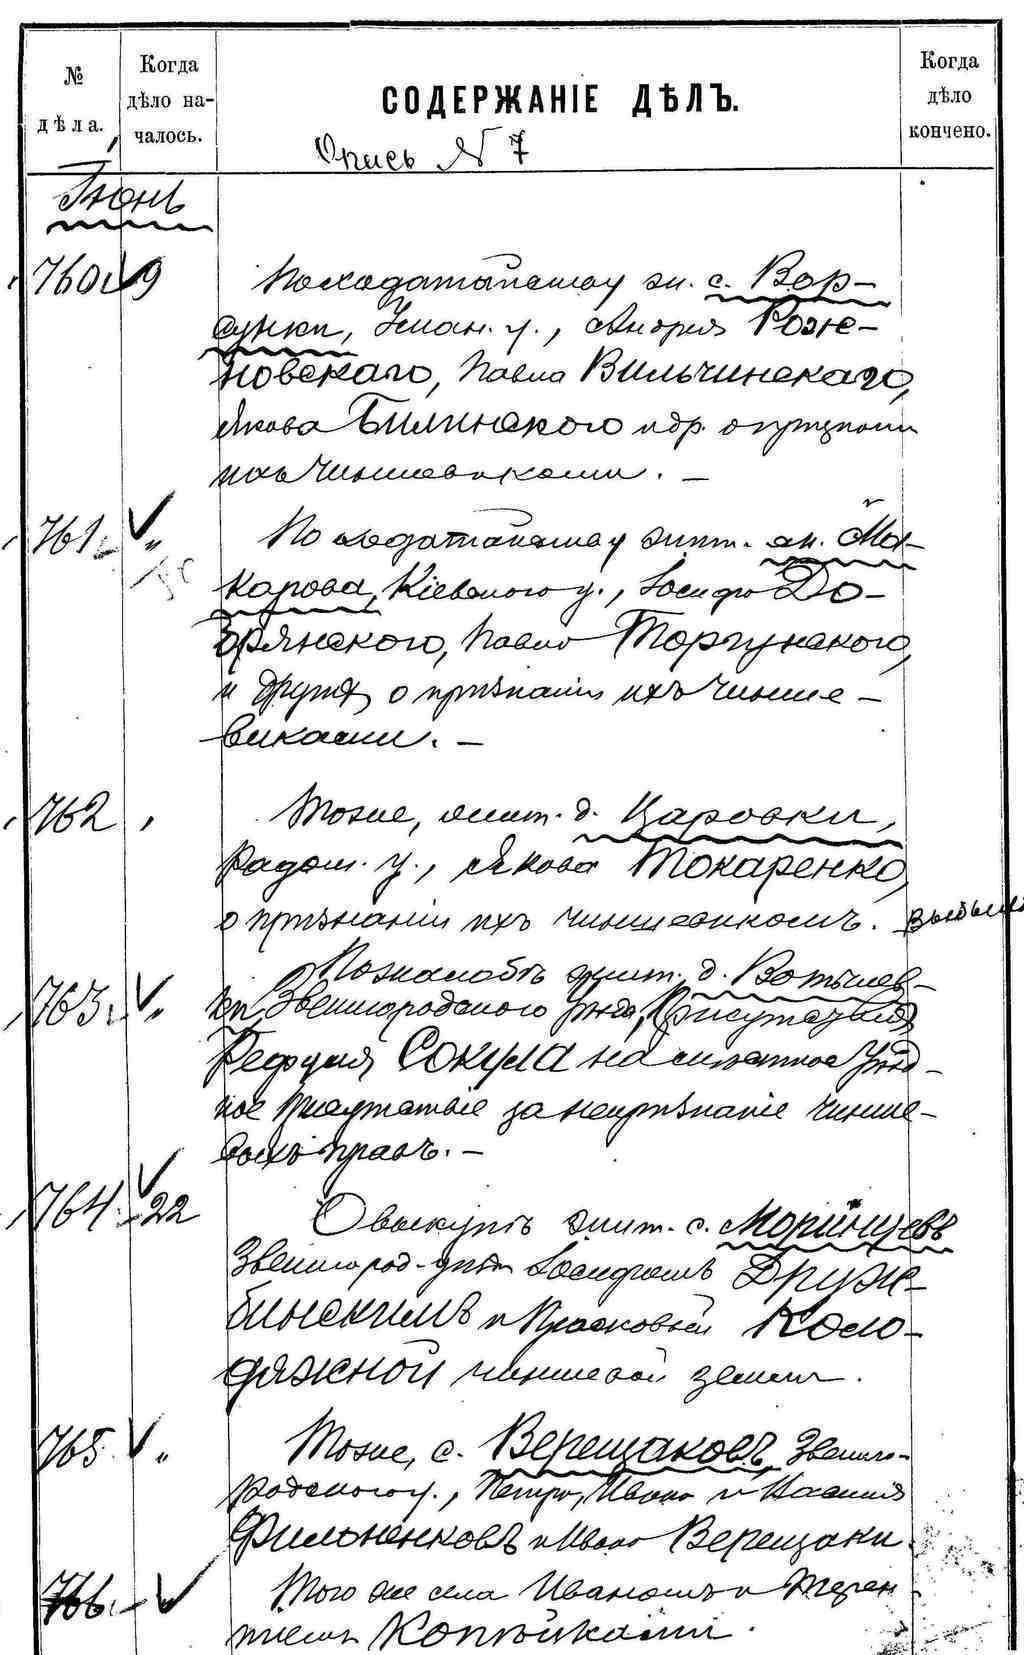 № дѣла.
Когда дѣло на-
чалось.
СОДЕРЖАНІЕ ДѢЛЪ.
Когда дѣло кончено.
Опись № 7
Іюнь
760 9 По ходатайству жит. с. Вор-
Уман. у., Андрея Рож-
новскаго, Павла Вильчинскаго,
Якова Билинского и др. о
ихъ чиншевиками. —
761 " По ходатайству жит. м. Ма-
карова, Кіевского у., Іосифа До-
брянского, Павла Торгунского,
и другихъ о признаніи ихъ чинше-
виками. —
762 " Тоже, жит. д. Царовки,
Радом. у., Якова Токаренко,
о признаніи ихъ чиншевикомъ.
763 " По жалобѣ жит. д.
ки, Звенигородского уѣзда,
Сокула на мѣстное уѣзд-
ное Присутствіе за непризнаніе чинше-
выхъ правъ. —
764 22 О выкупѣ жит. с. Моринцевъ
Звенигород. уѣзда Іосифомъ Друж-
бинскимъ и Прасковьей Коло-
дяжной чиншевой земли.
765 " Тоже, с. Верещаковъ, Звениго-
родского у., Петра, Ивана и
Филоненковъ и Ивана Верещаки.
766 Того же села Иваномъ и Терен-
тіемъ Копѣйками.